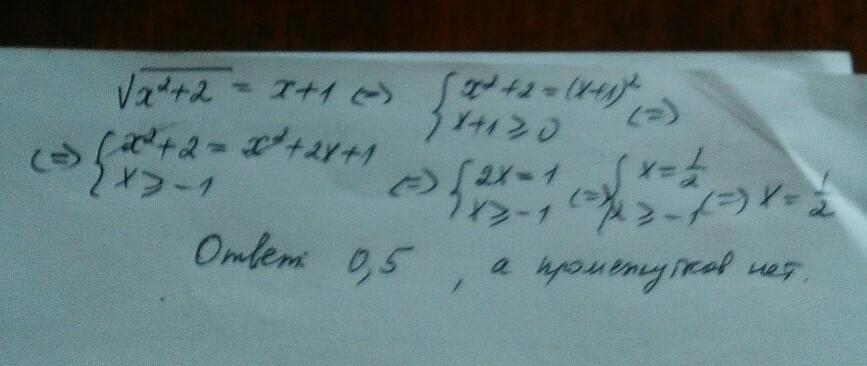 √(x²+2) = x+1 (=) { x²+2 = (x+1)² ; x+1 ⩾ 0 (=)
(=) { x²+2 = x²+2x+1 ; x ⩾ -1 (=) { 2x = 1 ; x ⩾ -1 (=) { x = 1/2 ; x ⩾ -1 (=) x = 1/2
Ответ: 0,5, а промежутков нет.